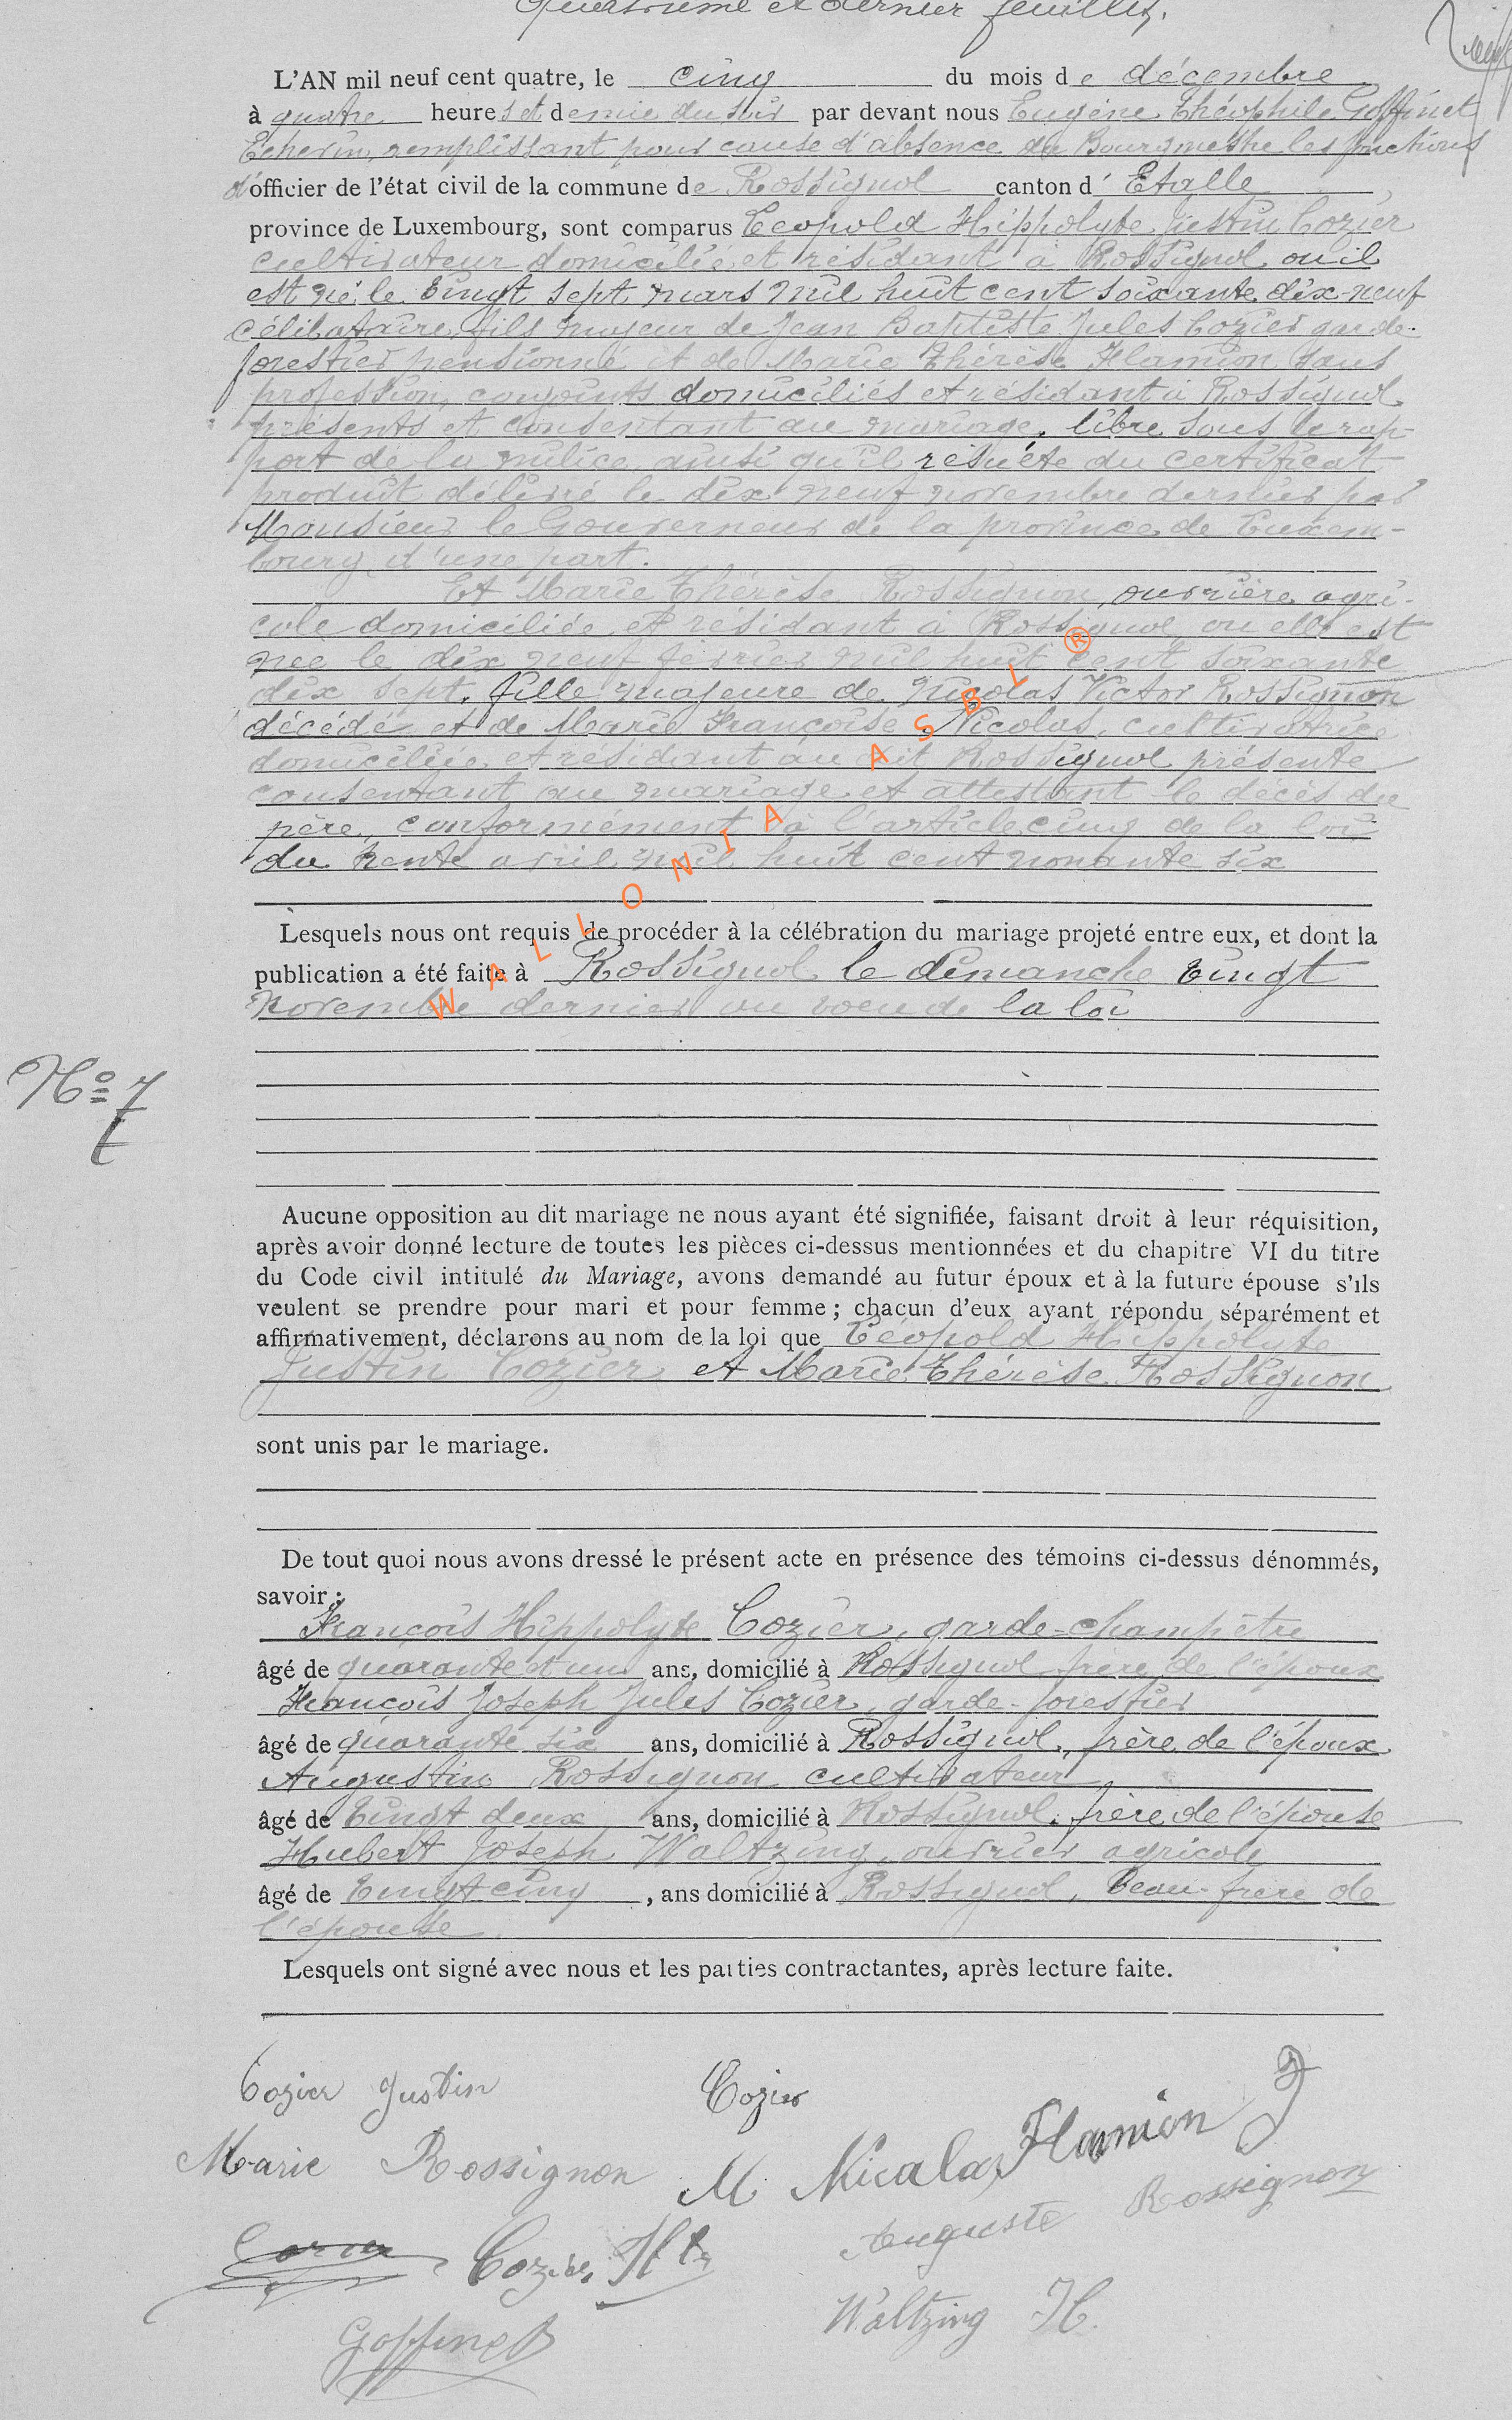 Quatrième et dernier feuillet.
L'AN mil neuf cent quatre, le cinq du mois de décembre
à quatre heures et demie du soir par devant nous Eugène Théophile Goffinet
Echevin, remplissant pour cause d'absence du Bourgmestre les fonctions
d'officier de l'état civil de la commune de Rossignol canton d' Etalle
province de Luxembourg, sont comparus Léopold Hippolyte Justin Cozier
cultivateur domicilié et résidant à Rossignol où il
est né le vingt sept mars mil huit cent soixante dix-neuf
célibataire, fils majeur de Jean Baptiste Jules Cozier garde-
forestier pensionné et de Marie Thérèse Hamion sans
profession, conjoints domiciliés et résidant à Rossignol
présents et consentant au mariage, libre sous le rap-
port de la milice ainsi qu'il résulte du certificat
produit délivré le dix neuf novembre dernier par
Monsieur le Gouverneur de la province de Luxem-
bourg d'une part.
Et Marie Thérèse Rossignon, ouvrière agri-
cole domiciliée et résidant à Rossignol où elle est
née le dix neuf février mil huit cent soixante
dix sept, fille majeure de Nicolas Victor Rossignon
décédé et de Marie Françoise Nicolas, cultivatrice
domiciliée et résidant au dit Rossignol présente
consentant au mariage et attestant le décès du
père, conformément à l'article cinq de la loi
du trente avril mil huit cent nonante six
WALLONIA ASBL ®
Lesquels nous ont requis de procéder à la célébration du mariage projeté entre eux, et dont la
publication a été faite à Rossignol le dimanche vingt
novembre dernier au voeu de la loi
N° 7
Aucune opposition au dit mariage ne nous ayant été signifiée, faisant droit à leur réquisition,
après avoir donné lecture de toutes les pièces ci-dessus mentionnées et du chapitre VI du titre
du Code civil intitulé du Mariage, avons demandé au futur époux et à la future épouse s'ils
veulent se prendre pour mari et pour femme ; chacun d'eux ayant répondu séparément et
affirmativement, déclarons au nom de la loi que Léopold Hippolyte
Justin Cozier et Marie Thérèse Rossignon
sont unis par le mariage.
De tout quoi nous avons dressé le présent acte en présence des témoins ci-dessus dénommés,
savoir :
François Hippolyte Cozier, garde-champêtre
âgé de quarante et un ans, domicilié à Rossignol frère de l'époux
François Joseph Jules Cozier, garde-forestier
âgé de quarante six ans, domicilié à Rossignol, frère de l'époux
Augustin Rossignon cultivateur
âgé de vingt deux ans, domicilié à Rossignol, frère de l'épouse
Hubert Joseph Waltzing, ouvrier agricole
âgé de vingt cinq , ans domicilié à Rossignol, beau-frère de
l'épouse
Lesquels ont signé avec nous et les parties contractantes, après lecture faite.
Cozier Justin Cozier
Marie Rossignon M Nicolas Hamion
Cozier Hte Auguste Rossignon
Goffinet Waltzing H.